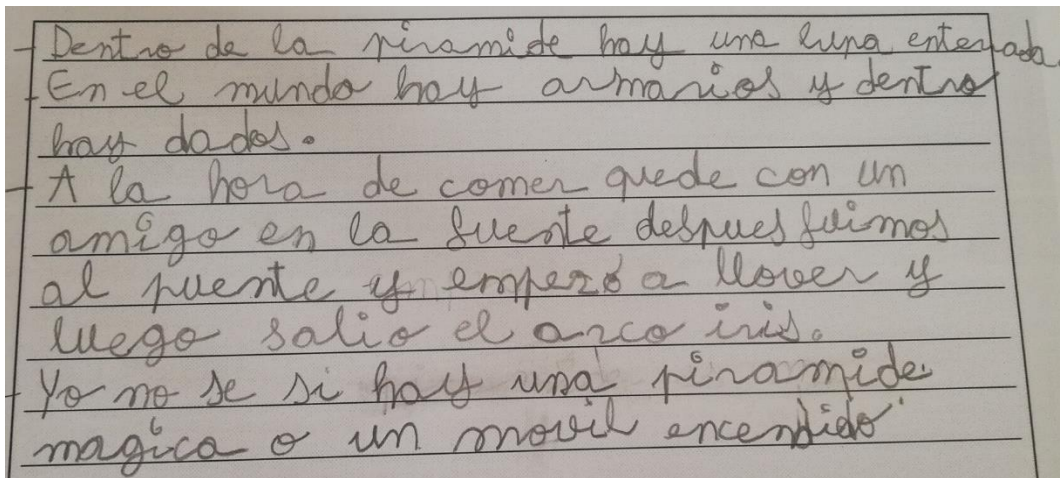 - Dentro de la piramide hay una lupa enterrada.
- En el mundo hay armarios y dentro
hay dados.
- A la hora de comer quede con un
amigo en la fuente despues fuimos
al puente y empezó a llover y
luego salio el arco iris.
- Yo no se si hay una piramide
magica o un movil encendido